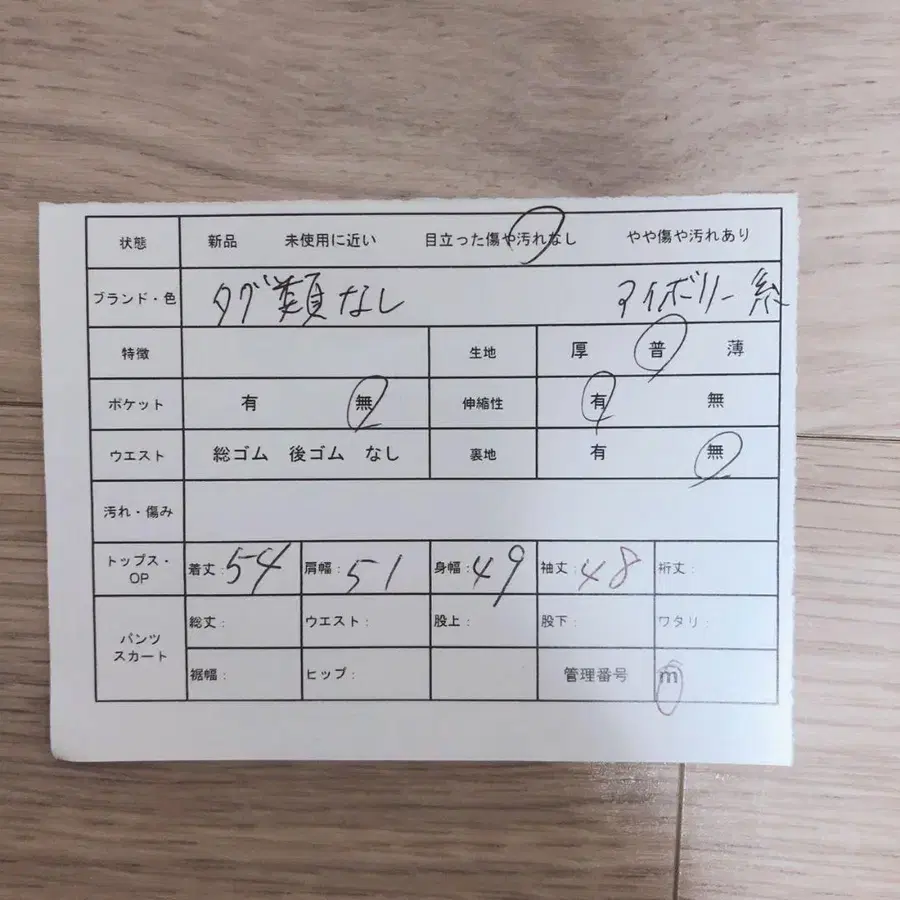 状態 新品 未使用に近い 目立った傷や汚れなし やや傷や汚れあり
ブランド・色 タグ類なし アイボリー系
特徴 生地 厚 普 薄
ポケット 有 無 伸縮性 有 無
ウエスト 総ゴム 後ゴム なし 裏地 有 無
汚れ・傷み
トップス・OP 着丈:54 肩幅:51 身幅:49 袖丈:48 裄丈:
パンツ スカート 総丈: ウエスト: 股上: 股下: ワタリ:
裾幅: ヒップ: 管理番号 m